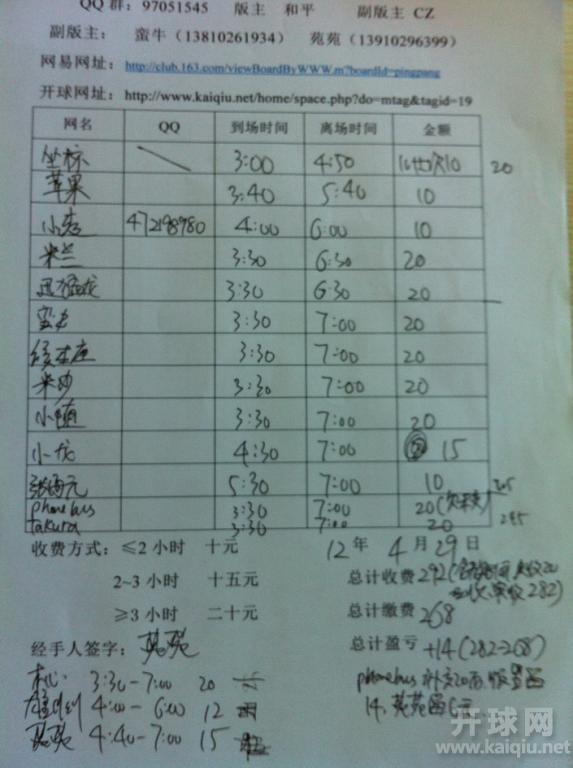 QQ 群: 97051545 版主 和平 副版主 CZ
副版主: 蛮牛（13810261934） 苑苑（13910296399）
网易网址: http://club.163.com/viewBoardByWWW.m?boardId=pingpang
开球网址: http://www.kaiqiu.net/home/space.php?do=mtag&tagid=19
网名 QQ 到场时间 离场时间 金额
坐标 3:00 4:50 10 20
苹果 3:40 5:40 10
472198980 4:00 6:00 10
米兰 3:30 6:30 20
迅猛龙 3:30 6:30 20
蛮牛 3:30 7:00 20
3:30 7:00 20
米沙 3:30 7:00 20
小随 3:30 7:00 20
小龙 4:30 7:00 15
5:30 7:00 10
phonebus 3:30 7:00 20
takura 3:30 7:00 20
收费方式: ≤2 小时 十元 12 年 4 月 29 日
2-3 小时 十五元 总计收费 292 282)
≥3 小时 二十元 总计缴费 268
经手人签字: 苑苑 总计盈亏 +14(282-268)
3:30-7:00 20
4:00-6:00 12
苑苑 4:40-7:00 15
phonebus 补交20
14.
开球网
www.kaiqiu.net